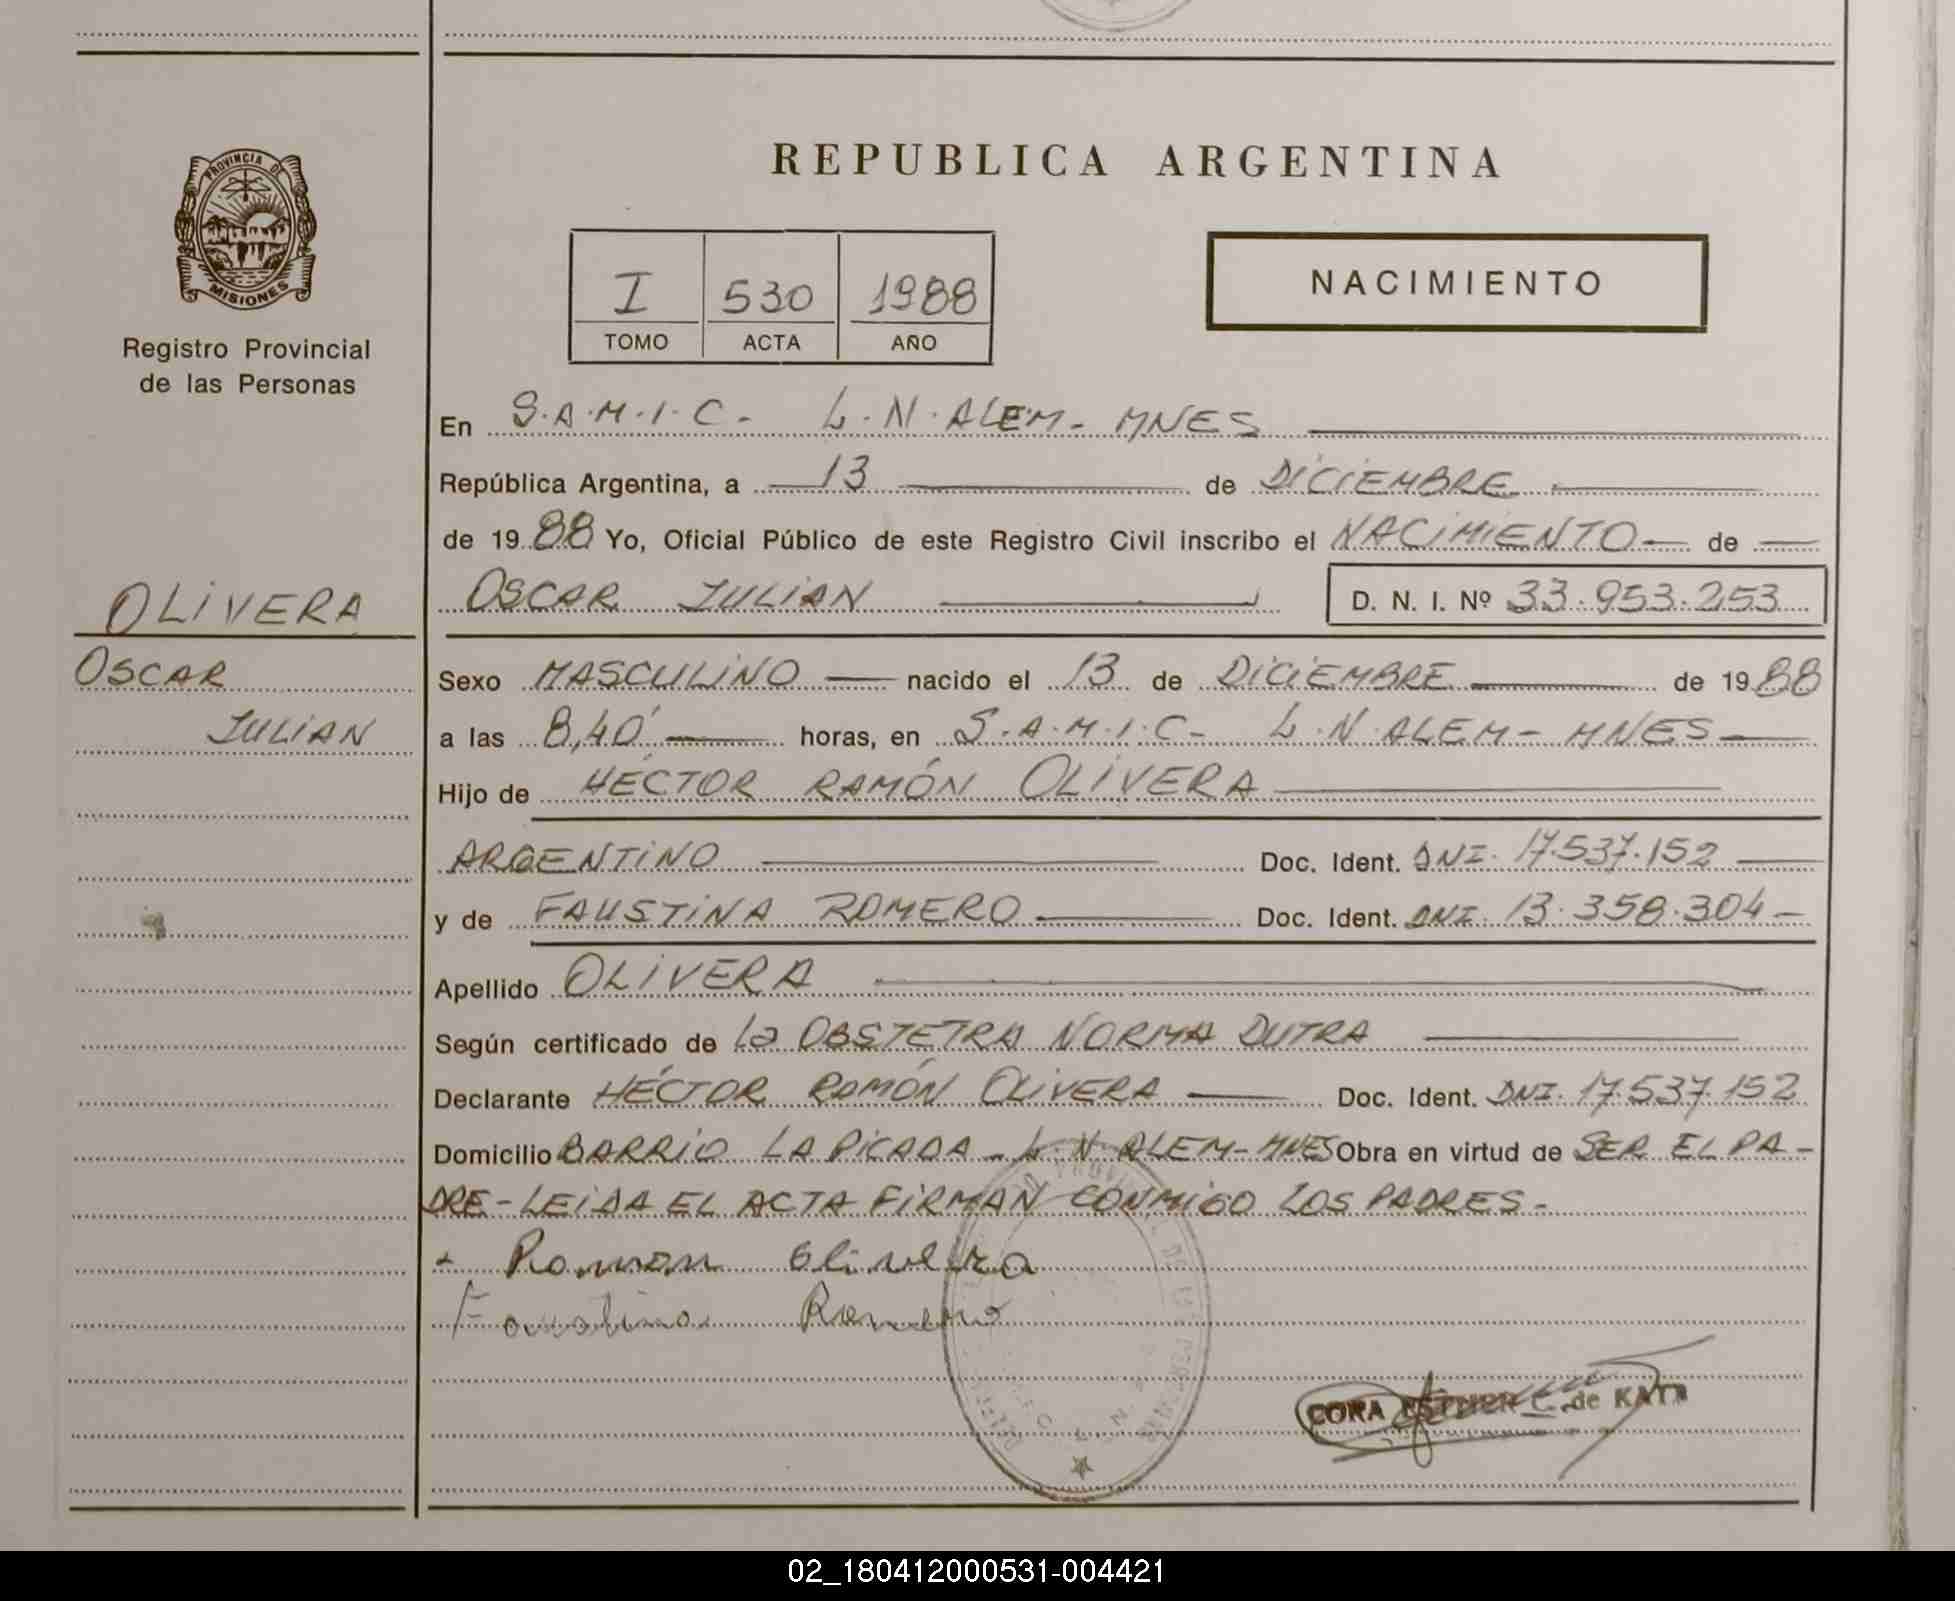 REPUBLICA ARGENTINA
PROVINCIA DE
MISIONES
Registro Provincial
de las Personas
I 530 1988
TOMO ACTA AÑO
NACIMIENTO
En S.A.M.I.C.- L.N.ALEM- MNES
República Argentina, a 13 de DICIEMBRE
de 1988 Yo, Oficial Público de este Registro Civil inscribo el NACIMIENTO de
OSCAR JULIAN D. N. I. Nº 33.953.253
OLIVERA
OSCAR
JULIAN
Sexo MASCULINO nacido el 13 de DICIEMBRE de 1988
a las 8,40 horas, en S.A.M.I.C- L.N.ALEM- MNES
Hijo de HÉCTOR RAMÓN OLIVERA
ARGENTINO Doc. Ident. DNI. 17.537.152
y de FAUSTINA ROMERO Doc. Ident. DNI. 13.358.304
Apellido OLIVERA
Según certificado de la OBSTETRA NORMA DUTRA
Declarante HÉCTOR RAMÓN OLIVERA Doc. Ident. DNI. 17.537.152
Domicilio BARRIO LA PICADA - L.N.ALEM-MNES Obra en virtud de SER EL PA-
DRE-LEIDA EL ACTA FIRMAN CONMIGO LOS PADRES-
Ramon Olivera
Faustina Romero
CORA ESTHER C. de KATZ
02_180412000531-004421